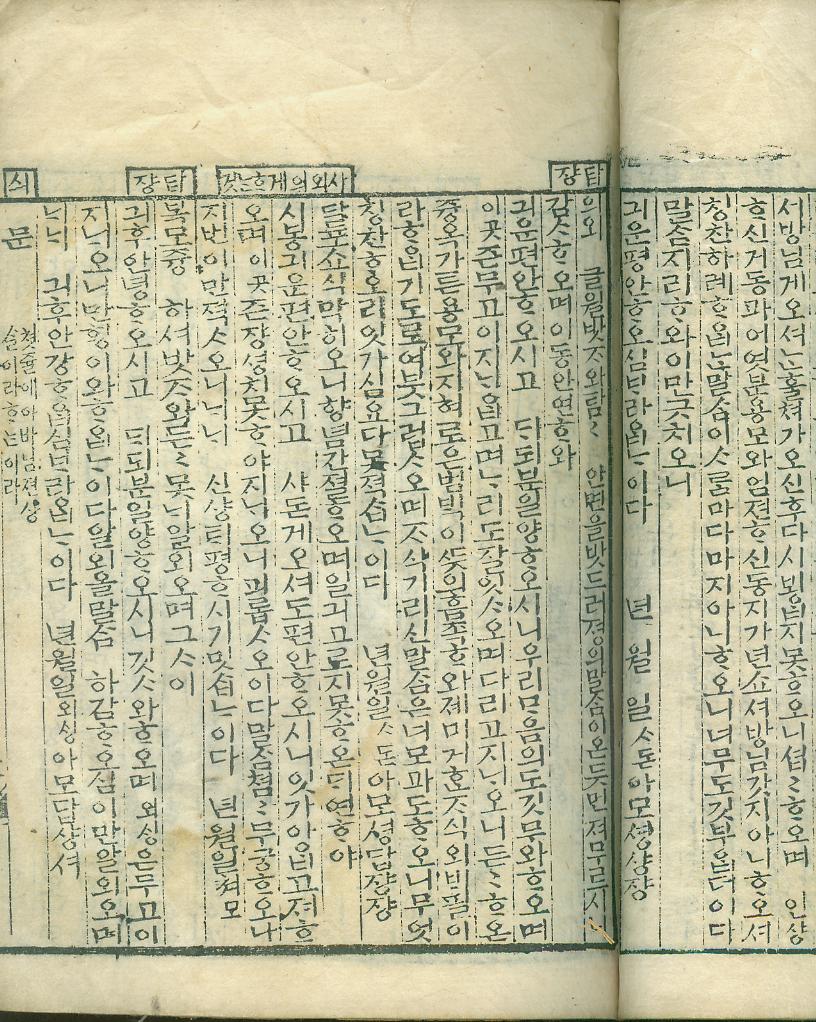 셔방님게오셔ᄂᆞᆫ훌쳐가오신후다시뵙지못ᄒᆞ오니셥〻ᄒᆞ오며 인샹
ᄒᆞ신거동과어엿분용모와임젼ᄒᆞ신동지가년쇼셔방님갓지아니ᄒᆞ오셔
칭찬하례ᄒᆞ옵ᄂᆞᆫ말ᄉᆞᆷ이ᄉᆞᄅᆞᆷ마다마지아니ᄒᆞ오니너무도깃부옵더이다
말ᄉᆞᆷ지리ᄒᆞ와이만긋치오니
긔운평안ᄒᆞ오심ᄇᆞ라옵ᄂᆞ이다 년 월 일ᄉᆞ돈아모셩샹쟝
답쟝
의외 글월밧ᄌᆞ와탐〻 안면을밧드러졍의말ᄉᆞᆷ이온듯먼져무르시니
감ᄉᆞᄒᆞ오며이동안연ᄒᆞ와
긔운편안ᄒᆞ오시고 ᄃᆡ되분일양ᄒᆞ오시니우리모음의도깃부와ᄒᆞ오며
이곳즌무고이지ᄂᆡ옵고며ᄂᆞ리도잘잇ᄉᆞ오며다리고지ᄂᆡ오니든〻ᄒᆞ온
즁옥가튼용모와지혜로은범ᄇᆡᆨ이ᄯᅳᆺ의흡죡ᄒᆞ와졔미거ᄒᆞᆫᄌᆞ식외ᄇᆡ필이
라ᄒᆞ옵기도로여붓그럽ᄉᆞ오며ᄌᆞ식기리신말ᄉᆞᆷ은너모과도ᄒᆞ오니무엇
칭찬ᄒᆞ오리잇가심요다못젹ᄉᆞᆸᄂᆞ이다 년월일ᄉᆞ돈아모셩답쟝
사외의게ᄒᆞᄂᆞᆫ것
달포쇼식막히오니향념간졀ᄒᆞ오며일긔고로지못ᄒᆞ온ᄃᆡ연ᄒᆞ야
시봉긔운편안ᄒᆞ오시고 샤돈게오셔도편안ᄒᆞ오시니잇가앙비고져ᄒᆞ
오며이곳즌쟝셩치못ᄒᆞ야지ᄂᆡ오니괴롭ᄉᆞ오이다말ᄉᆞᆷ쳡〻무궁ᄒᆞ오나
지번이만젹ᄉᆞ오니ᄂᆡᄂᆡ 신샹ᄐᆡ평ᄒᆞ시기밋ᄉᆞᆸᄂᆞ이다 년월일쳐모
답쟝
톡모즁 하셔밧ᄌᆞ왑든〻못ᄂᆡ알외오며그ᄉᆞ이
긔후안녕ᄒᆞ오시고 ᄃᆡ되분일양ᄒᆞ오시니깃ᄉᆞ와ᄒᆞ오며 외ᄉᆡᆼ은두고이
지ᄂᆡ오니만ᄒᆡᆼ이와ᄒᆞ옵ᄂᆞ이다알외올말ᄉᆞᆷ 하감ᄒᆞ오심이만알외오며
ᄂᆡᄂᆡ 긔후안강ᄒᆞ옵심ᄇᆞ라옵ᄂᆞ이다 년월일외ᄉᆡᆼ아모답샹셔
문
쳣쥴에아바님젼샹
ᄉᆞᆯ이라ᄒᆞᄂᆞ이라